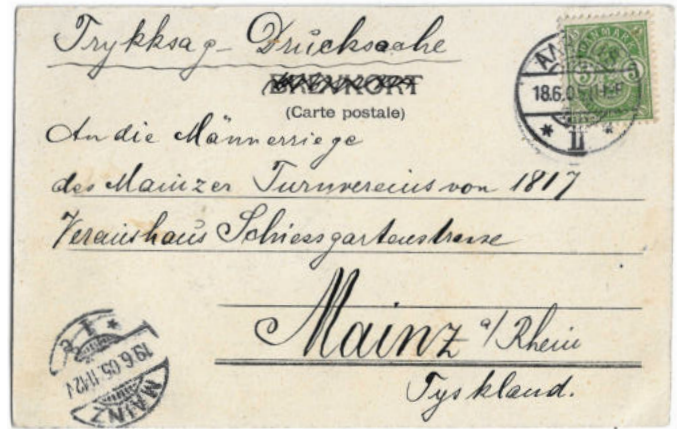 Trykksag - Drucksache
BREVKORT
(Carte postale)
DANMARK
5 5
18.6.05
II
An die Männerriege
des Mainzer Turnvereins von 1817
Vereinshaus Schiessgartenstrasse
Mainz a/Rhein
Tyskland.
19.6.05.11-12V
MAINZ